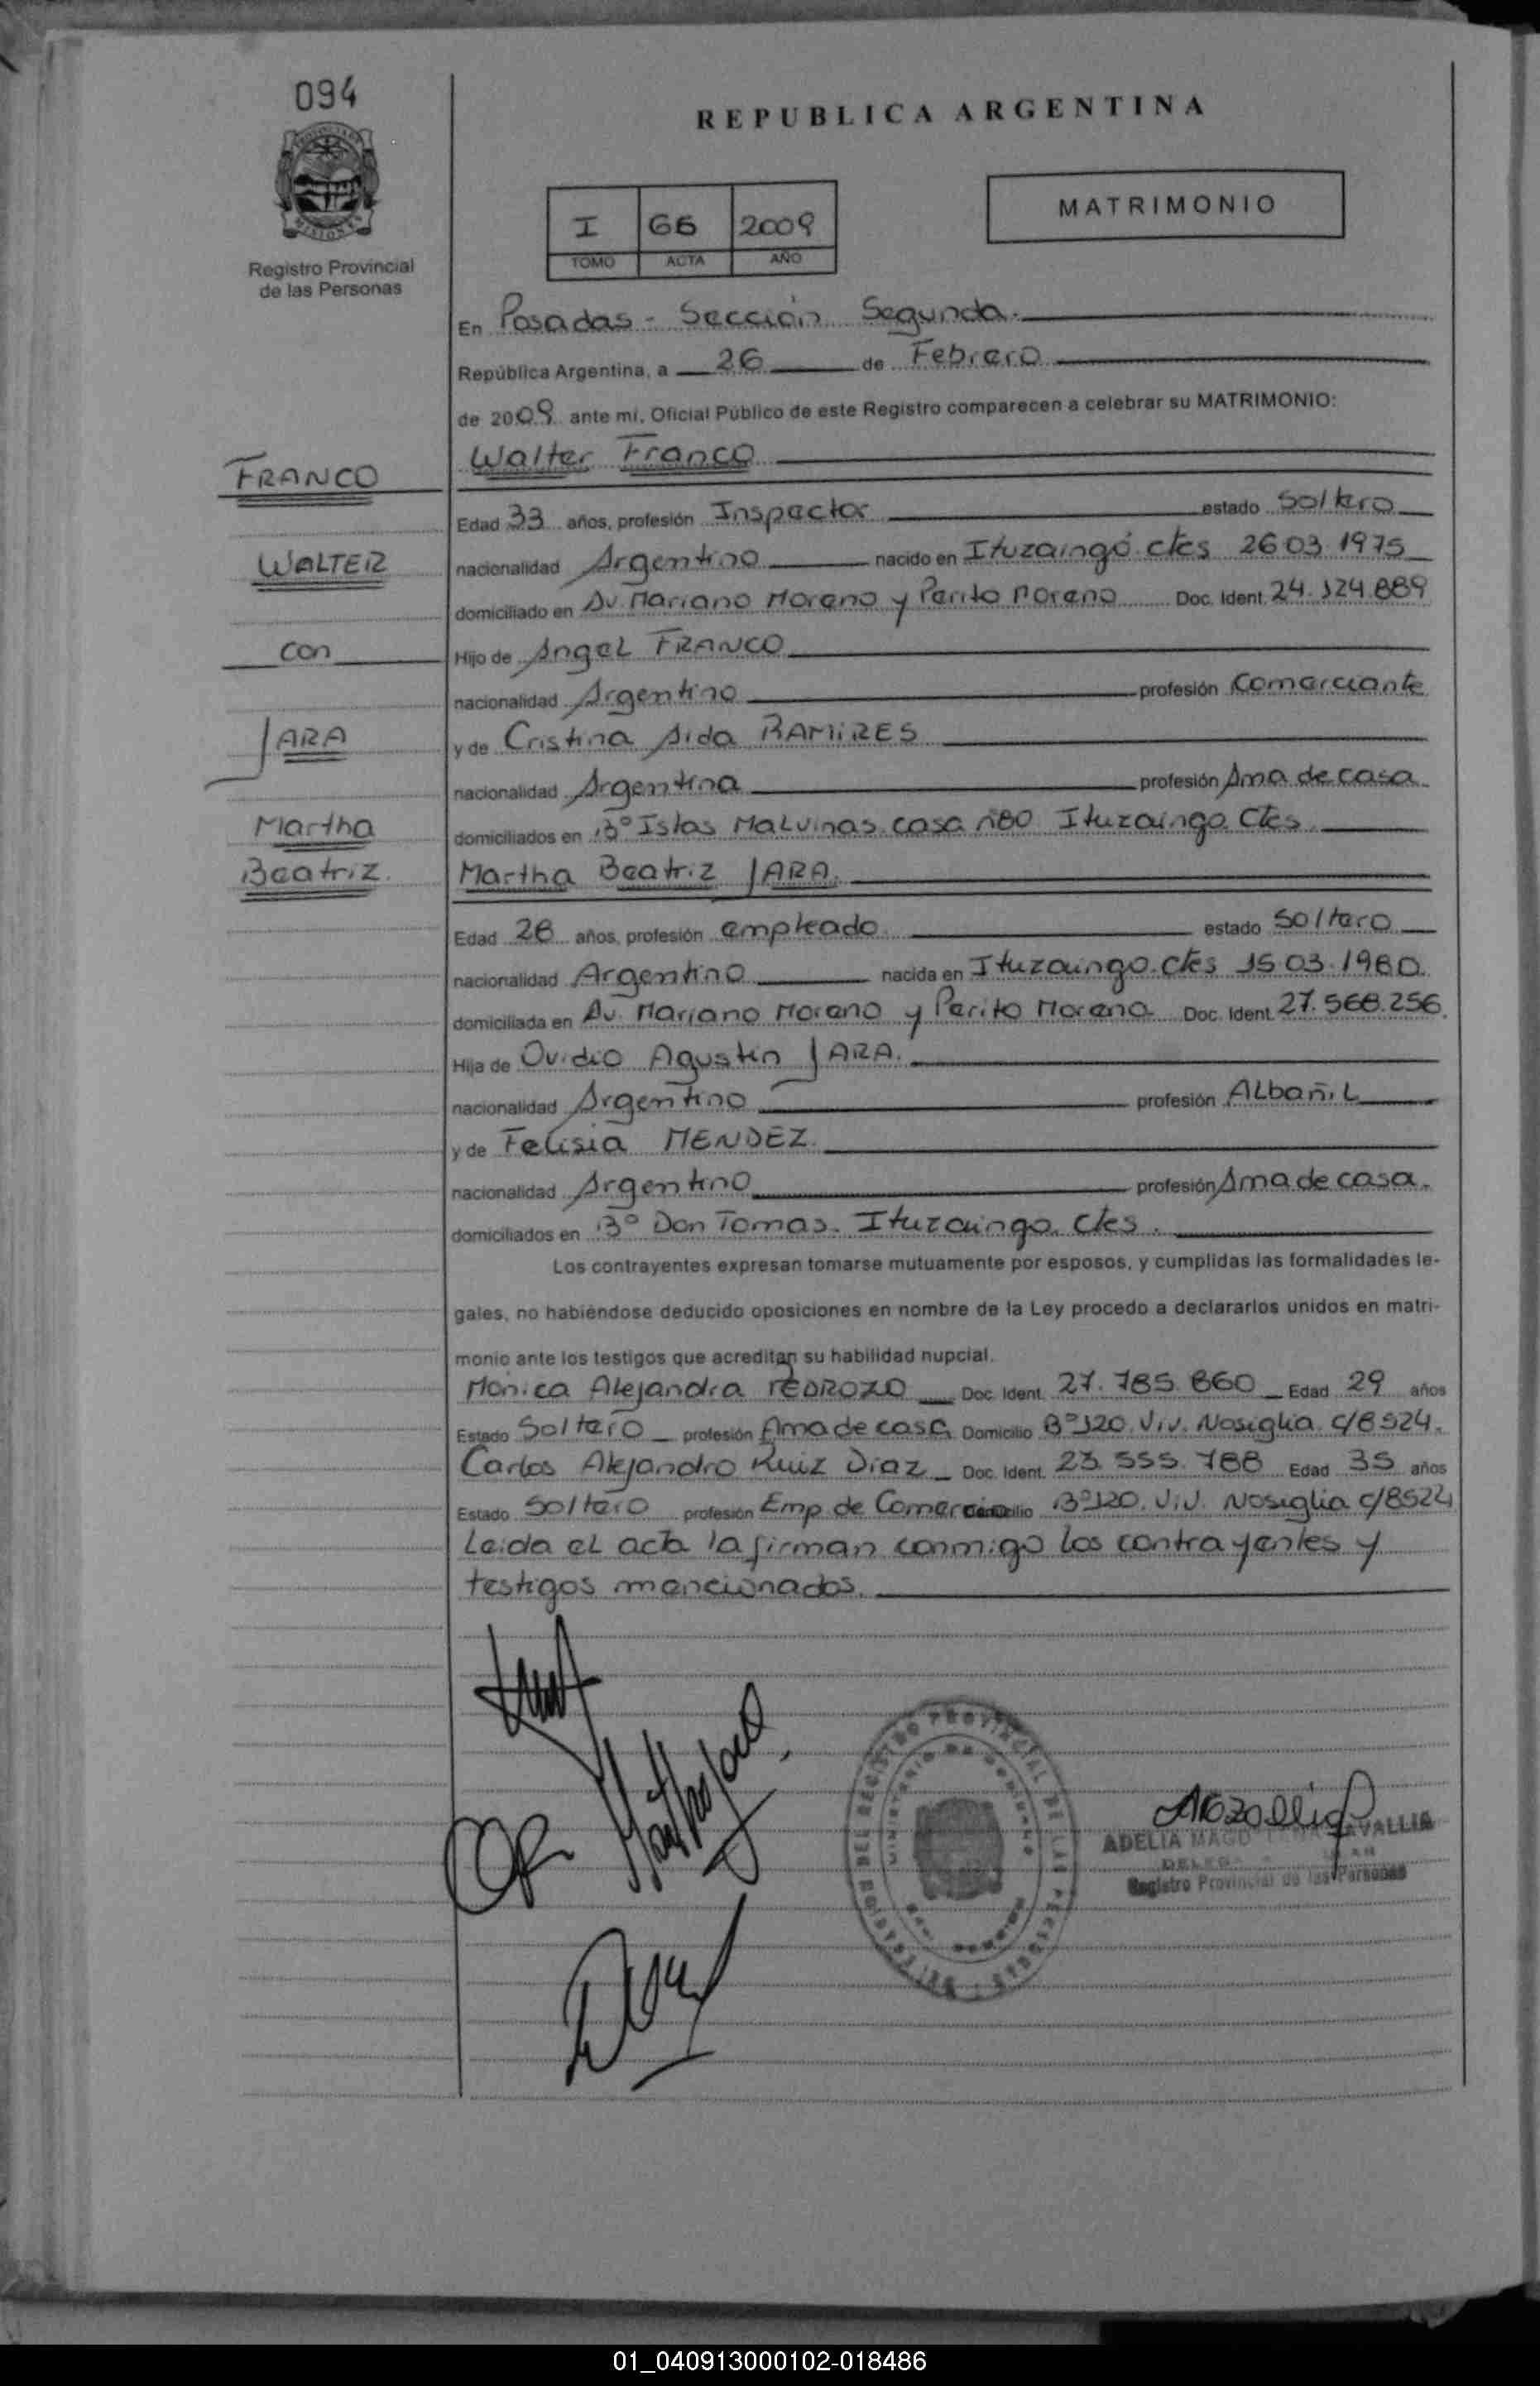 094
REPUBLICA ARGENTINA
MATRIMONIO
I 66 2009
TOMO ACTA AÑO
Registro Provincial
de las Personas
En Posadas - Sección Segunda.
República Argentina, a 26 de Febrero
de 2009 ante mí, Oficial Público de este Registro comparecen a celebrar su MATRIMONIO:
Walter Franco
FRANCO
Edad 33 años, profesión Inspector estado Soltero
WALTER
nacionalidad Argentino nacido en Ituzaingó Ctes 26 03 1975
domiciliado en Av. Mariano Moreno y Perito Moreno Doc. Ident. 24.324.889
con
Hijo de Angel FRANCO
nacionalidad Argentino profesión Comerciante
JARA
y de Cristina Aida RAMIRES
nacionalidad Argentina profesión Ama de casa
Martha
domiciliados en B° Islas Malvinas casa n80 Ituzaingo Ctes
Beatriz.
Martha Beatriz JARA.
Edad 28 años, profesión empleado estado Soltero
nacionalidad Argentino nacida en Ituzaingo. Ctes 15 03 1980
domiciliada en Av. Mariano Moreno y Perito Moreno Doc. Ident. 27.568.256.
Hija de Ovidio Agustin JARA.
nacionalidad Argentino profesión Albañil
y de Felisia MENDEZ.
nacionalidad Argentino profesión Ama de casa.
domiciliados en B° Don Tomas. Ituzaingo. Ctes.
Los contrayentes expresan tomarse mutuamente por esposos, y cumplidas las formalidades le-
gales, no habiéndose deducido oposiciones en nombre de la Ley procedo a declararlos unidos en matri-
monio ante los testigos que acreditan su habilidad nupcial.
Monica Alejandra PEDROZO Doc. Ident. 27.785.860 Edad 29 años
Estado Soltero profesión Ama de casa Domicilio B° 120. Viv. Nosiglia. c/8524.
Carlos Alejandro Ruiz Diaz Doc. Ident. 23.555.788 Edad 35 años
Estado Soltero profesión Emp de Comercio B° 120. Viv. Nosiglia c/8524
Leida el acta la firman conmigo los contrayentes y
testigos mencionados.
ADELIA
Registro Provincial de las Personas
01_040913000102-018486